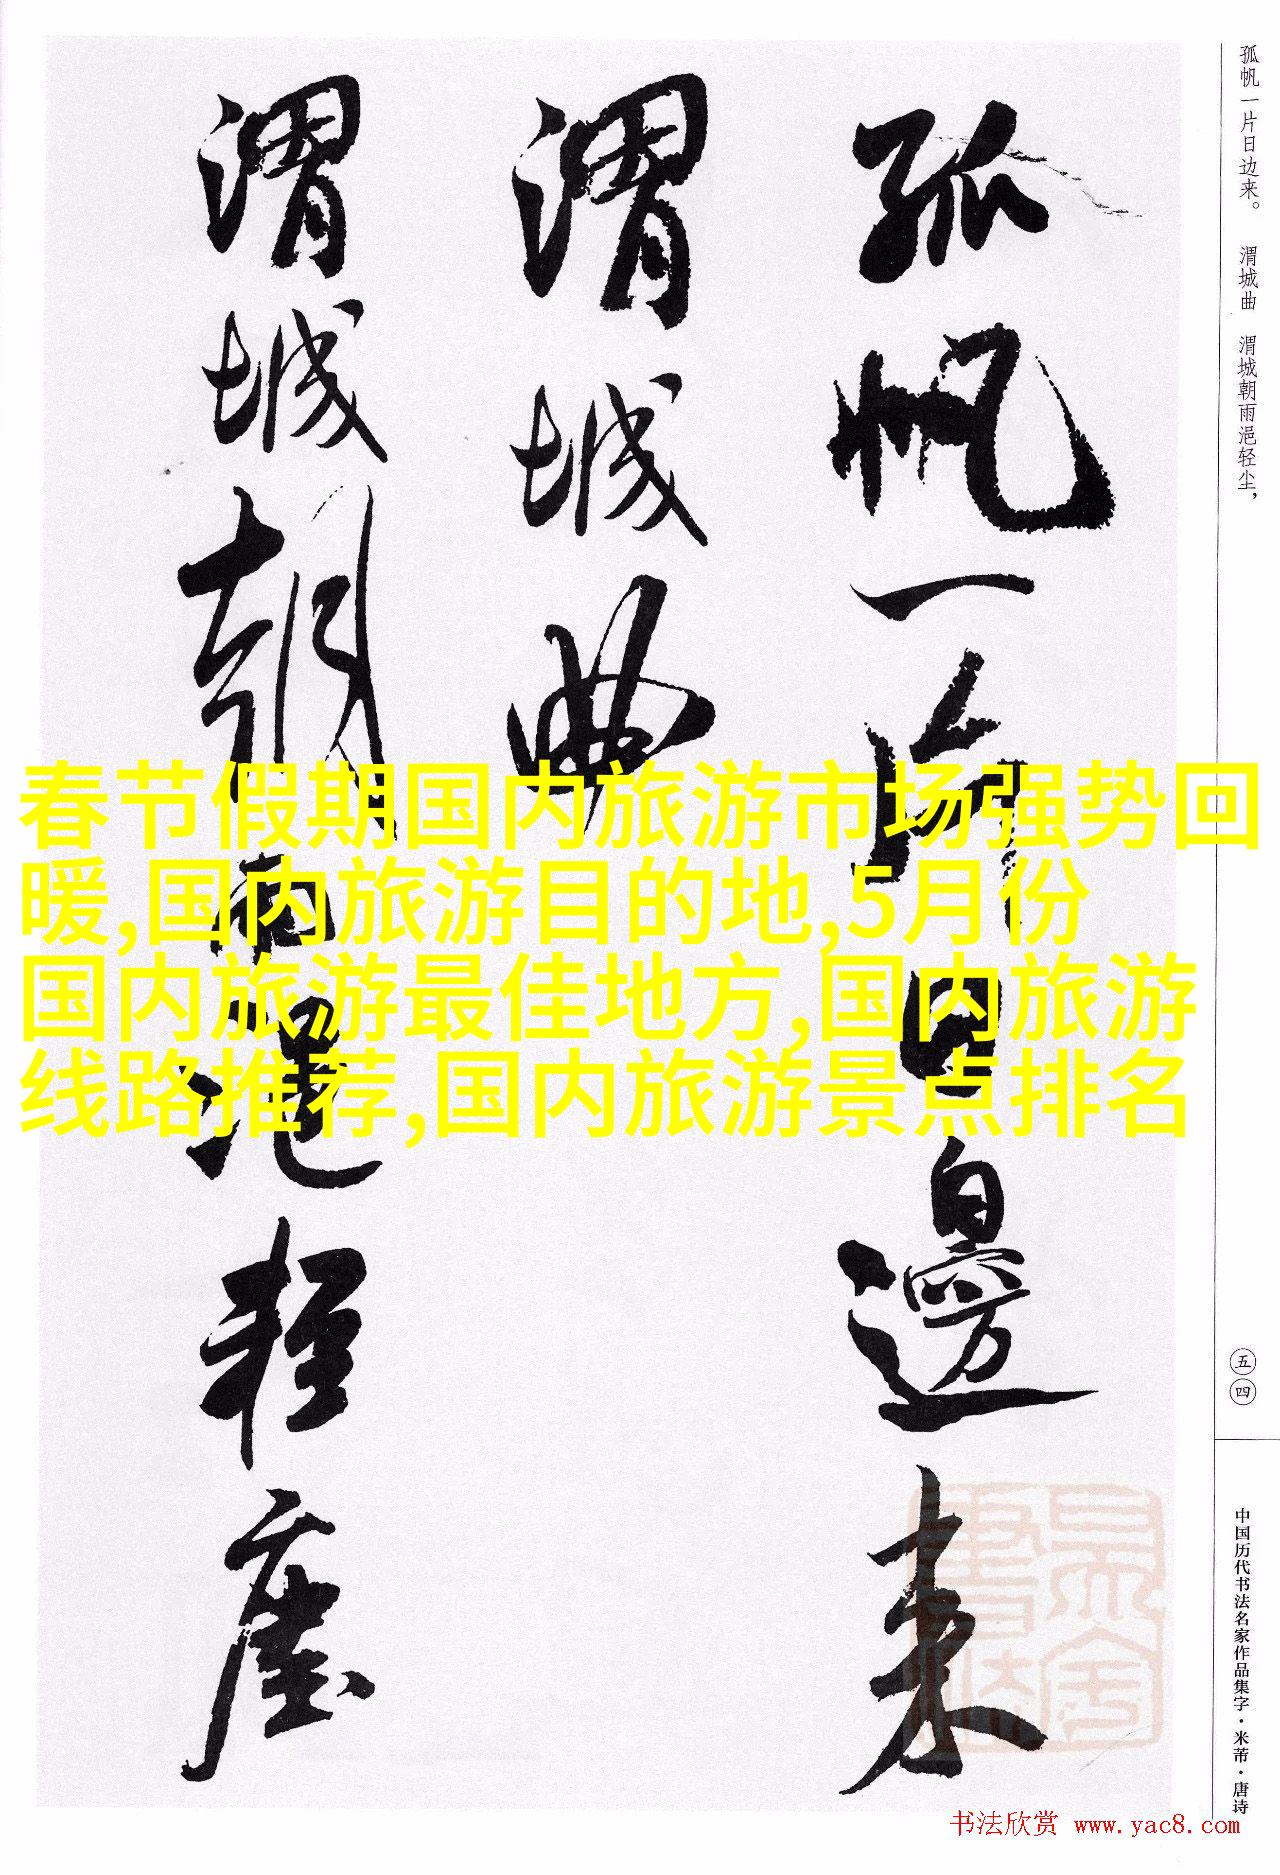 孤帆一片日边来。 渭城曲 渭城朝雨浥轻尘，
孤帆一片日邊来
渭城曲
渭城朝雨浥輕塵
春节假期国内旅游市场强势回
暖,国内旅游目的地,5月份
国内旅游最佳地方,国内旅游
线路推荐,国内旅游景点排名
五四
中国历代书法名家作品集字·米芾·唐诗
书法欣赏 www.yac8.com